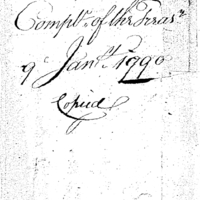 Compt. of the Treasr
9 Jany 1790
Copied